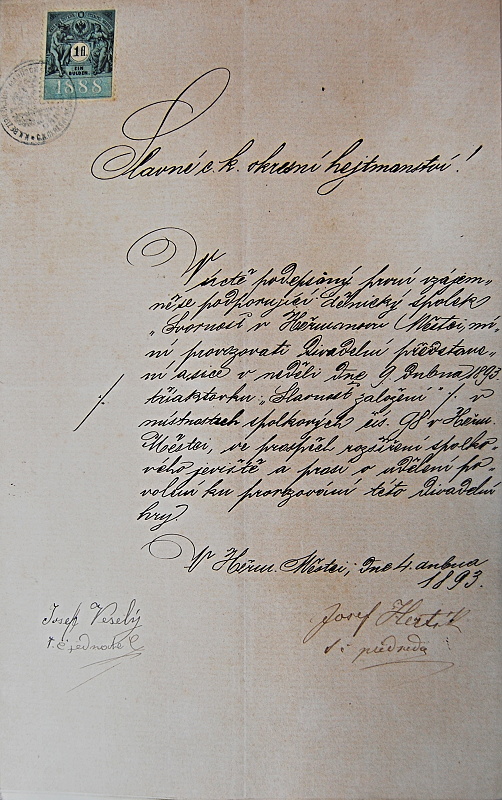 1 fl.
EIN
GULDEN
1888
Slavné c. k. okresní hejtmanství!
V úctě podepsaný první vzájem-
ně se podporující dělnický spolek
„Svornosť“ v Heřmanovu Městci mí-
ní provozovati divadelní představe-
ní a sice v neděli dne 9. dubna 1893
tříaktovku „Slavnosť založení“ ⁒ v
⁒ místnostech spolkových čís. 98 v Heřm.
Městci, ve prospěch rozšíření spolko-
vého jeviště a prosí o udělení po-
volení ku provozování této divadelní
hry.
V Heřm. Městci, dne 4. dubna
1893.
Josef Veselý
t. č. jednatel
Josef Hertík
t. č. předseda